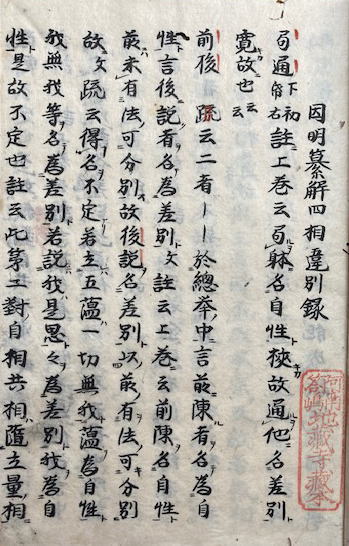 因明纂解四相違別録
局通 註上卷云局躰名自性狹故通他名差別
寬故也云云
前後 疏云二者ーー於總舉中言前陳者名為自
性言後説者名為差別文註上卷云前陳名自性
前未有法可分別故後説名差別以前有法可分別
故文疏云得名不定若立五蘊一切無我蘊為自性
我無我等名為差別若説我是思々為差別我為自
性是故不定也註云此第二對自相共相立量相
地藏寺藏本